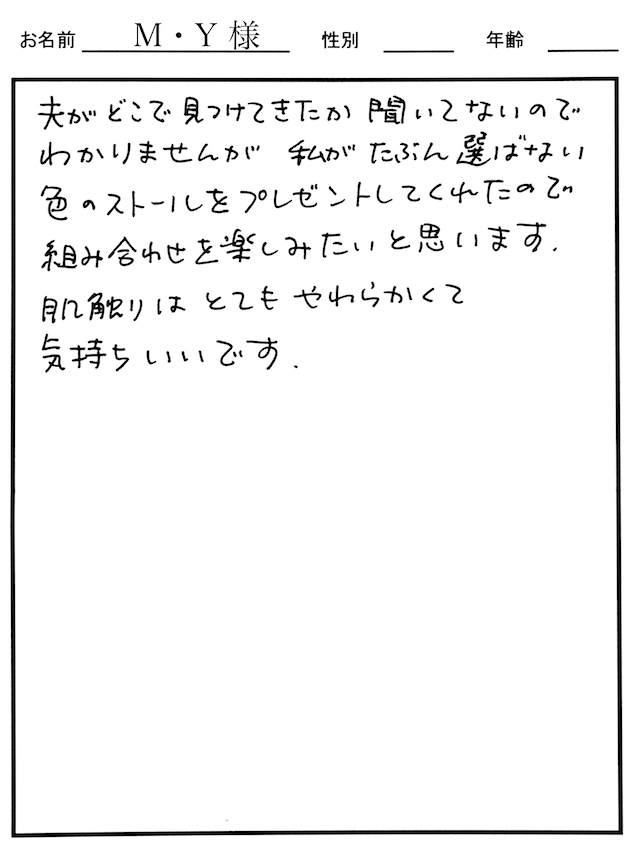 お名前 M・Y様 性別 年齢
夫がどこで見つけてきたか聞いてないので
わかりませんが 私がたぶん選ばない
色のストールをプレゼントしてくれたので
組み合わせを楽しみたいと思います.
肌触りは とても やわらかくて
気持ちいいです.